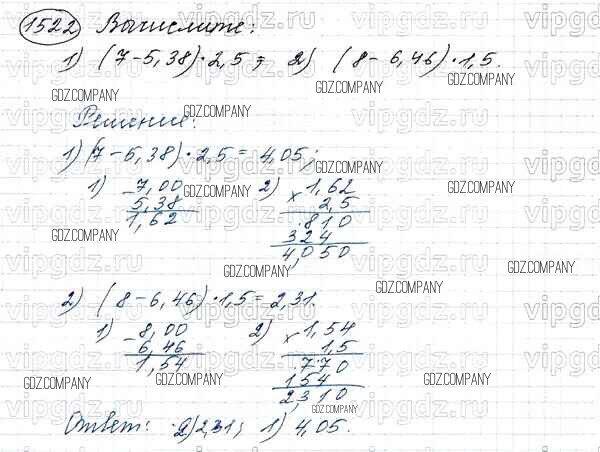 1522 Вычислите:
1) (7-5,38)·2,5; 2) (8-6,46)·1,5.
Решение:
1) (7-5,38)·2,5=4,05;
1) -7,00 2) ×1,62
5,38 2,5
1,62 810
324
4,050
2) (8-6,46)·1,5=2,31.
1) -8,00 2) ×1,54
6,46 1,5
1,54 770
154
2,310
Ответ: 2) 2,31; 1) 4,05.
vipgdz.ru
GDZ.COMPANY